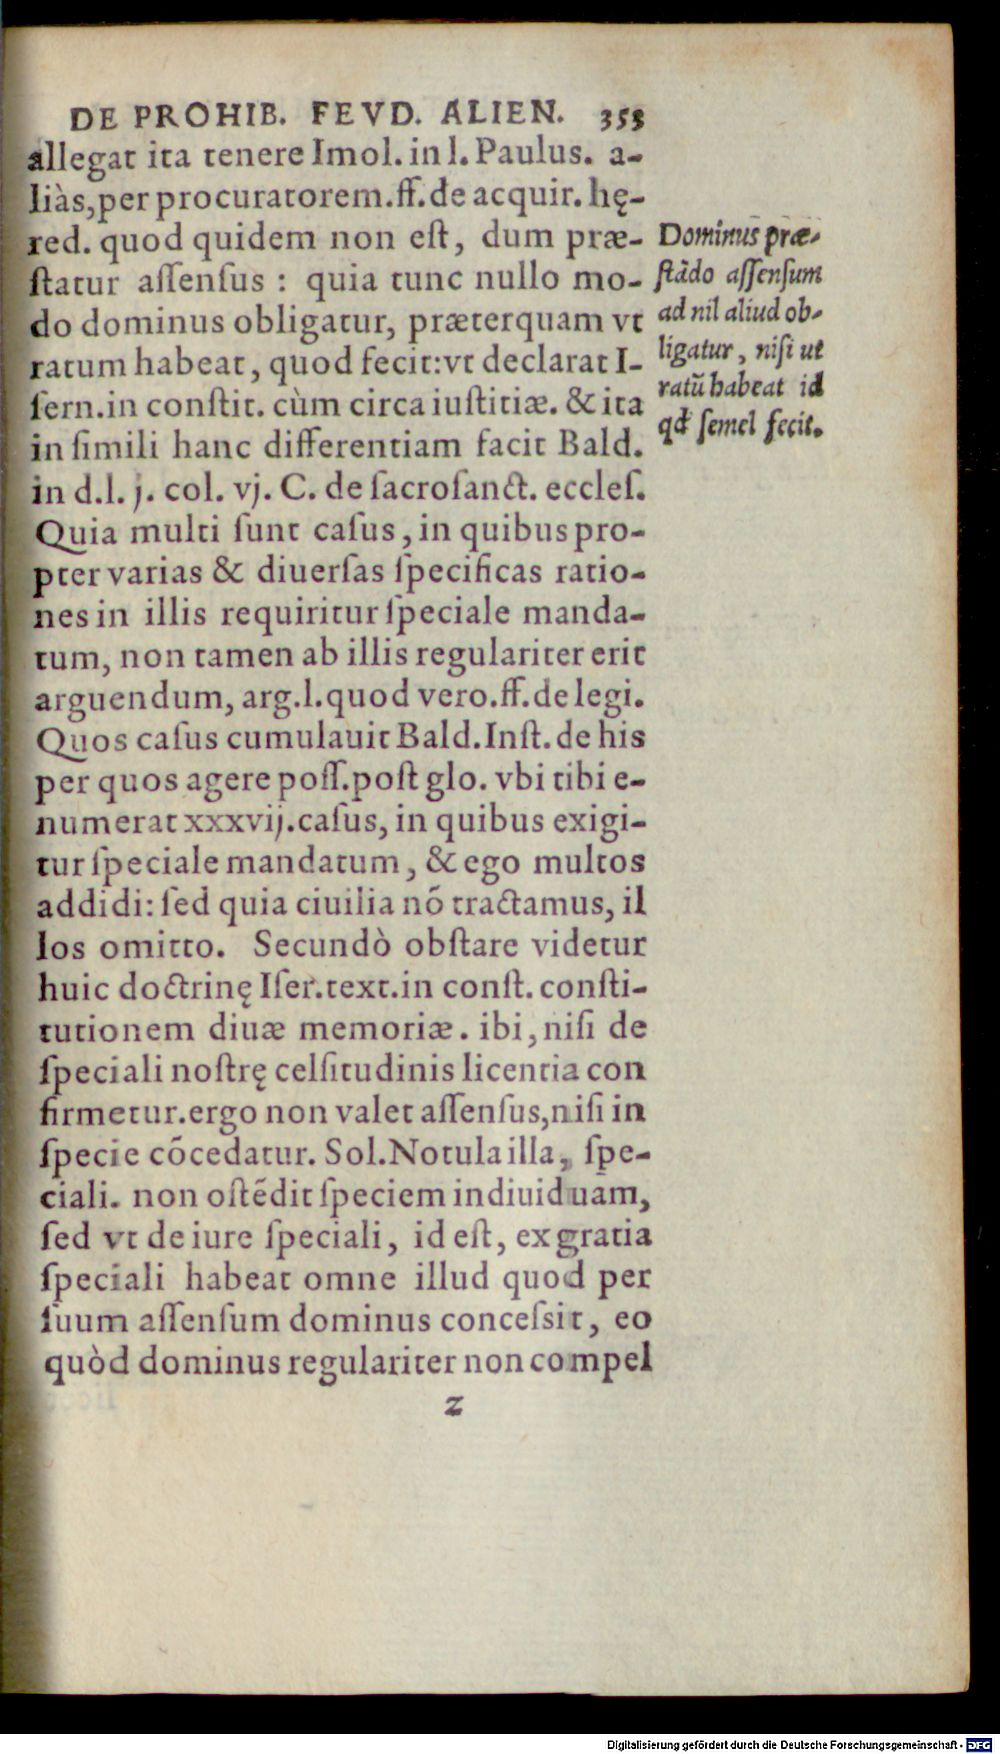 DE PROHIB. FEVD. ALIEN. 353
allegat ita tenere Imol. in l. Paulus. a-
liàs,per procuratorem.ff.de acquir. hę-
red. quod quidem non est, dum præ-
ſtatur aſſenſus : quia tunc nullo mo-
do dominus obligatur, præterquam vt
ratum habeat, quod fecit:vt declarat I-
ſern.in conſtit. cùm circa iuſtitiæ. & ita
in ſimili hanc differentiam facit Bald.
in d.l. j. col. vj. C. de ſacroſanct. eccleſ.
Quia multi ſunt caſus, in quibus pro-
pter varias & diuerſas ſpecificas ratio-
nes in illis requiritur ſpeciale manda-
tum, non tamen ab illis regulariter erit
arguendum, arg.l.quod vero.ff.de legi.
Quos caſus cumulauit Bald.Inſt.de his
per quos agere poſſ.poſt glo. vbi tibi e-
numerat xxxvij.caſus, in quibus exigi-
tur ſpeciale mandatum, & ego multos
addidi: ſed quia ciuilia nõ tractamus, il
los omitto. Secundò obſtare videtur
huic doctrinę Iſer.text.in conſt. conſti-
tutionem diuæ memoriæ. ibi,niſi de
ſpeciali noſtrę celſitudinis licentia con
firmetur.ergo non valet aſſenſus,niſi in
ſpecie cõcedatur. Sol.Notula illa, ſpe-
ciali. non oſtẽdit ſpeciem indiuiduam,
ſed vt de iure ſpeciali, id eſt, ex gratia
ſpeciali habeat omne illud quod per
ſuum aſſenſum dominus conceſsit, eo
quòd dominus regulariter non compel
z
Dominus præ-
ſtãdo aſſenſum
ad nil aliud ob-
ligatur, niſi ut
ratũ habeat id
qđ ſemel fecit.
Digitalisierung gefördert durch die Deutsche Forschungsgemeinschaft - DFG